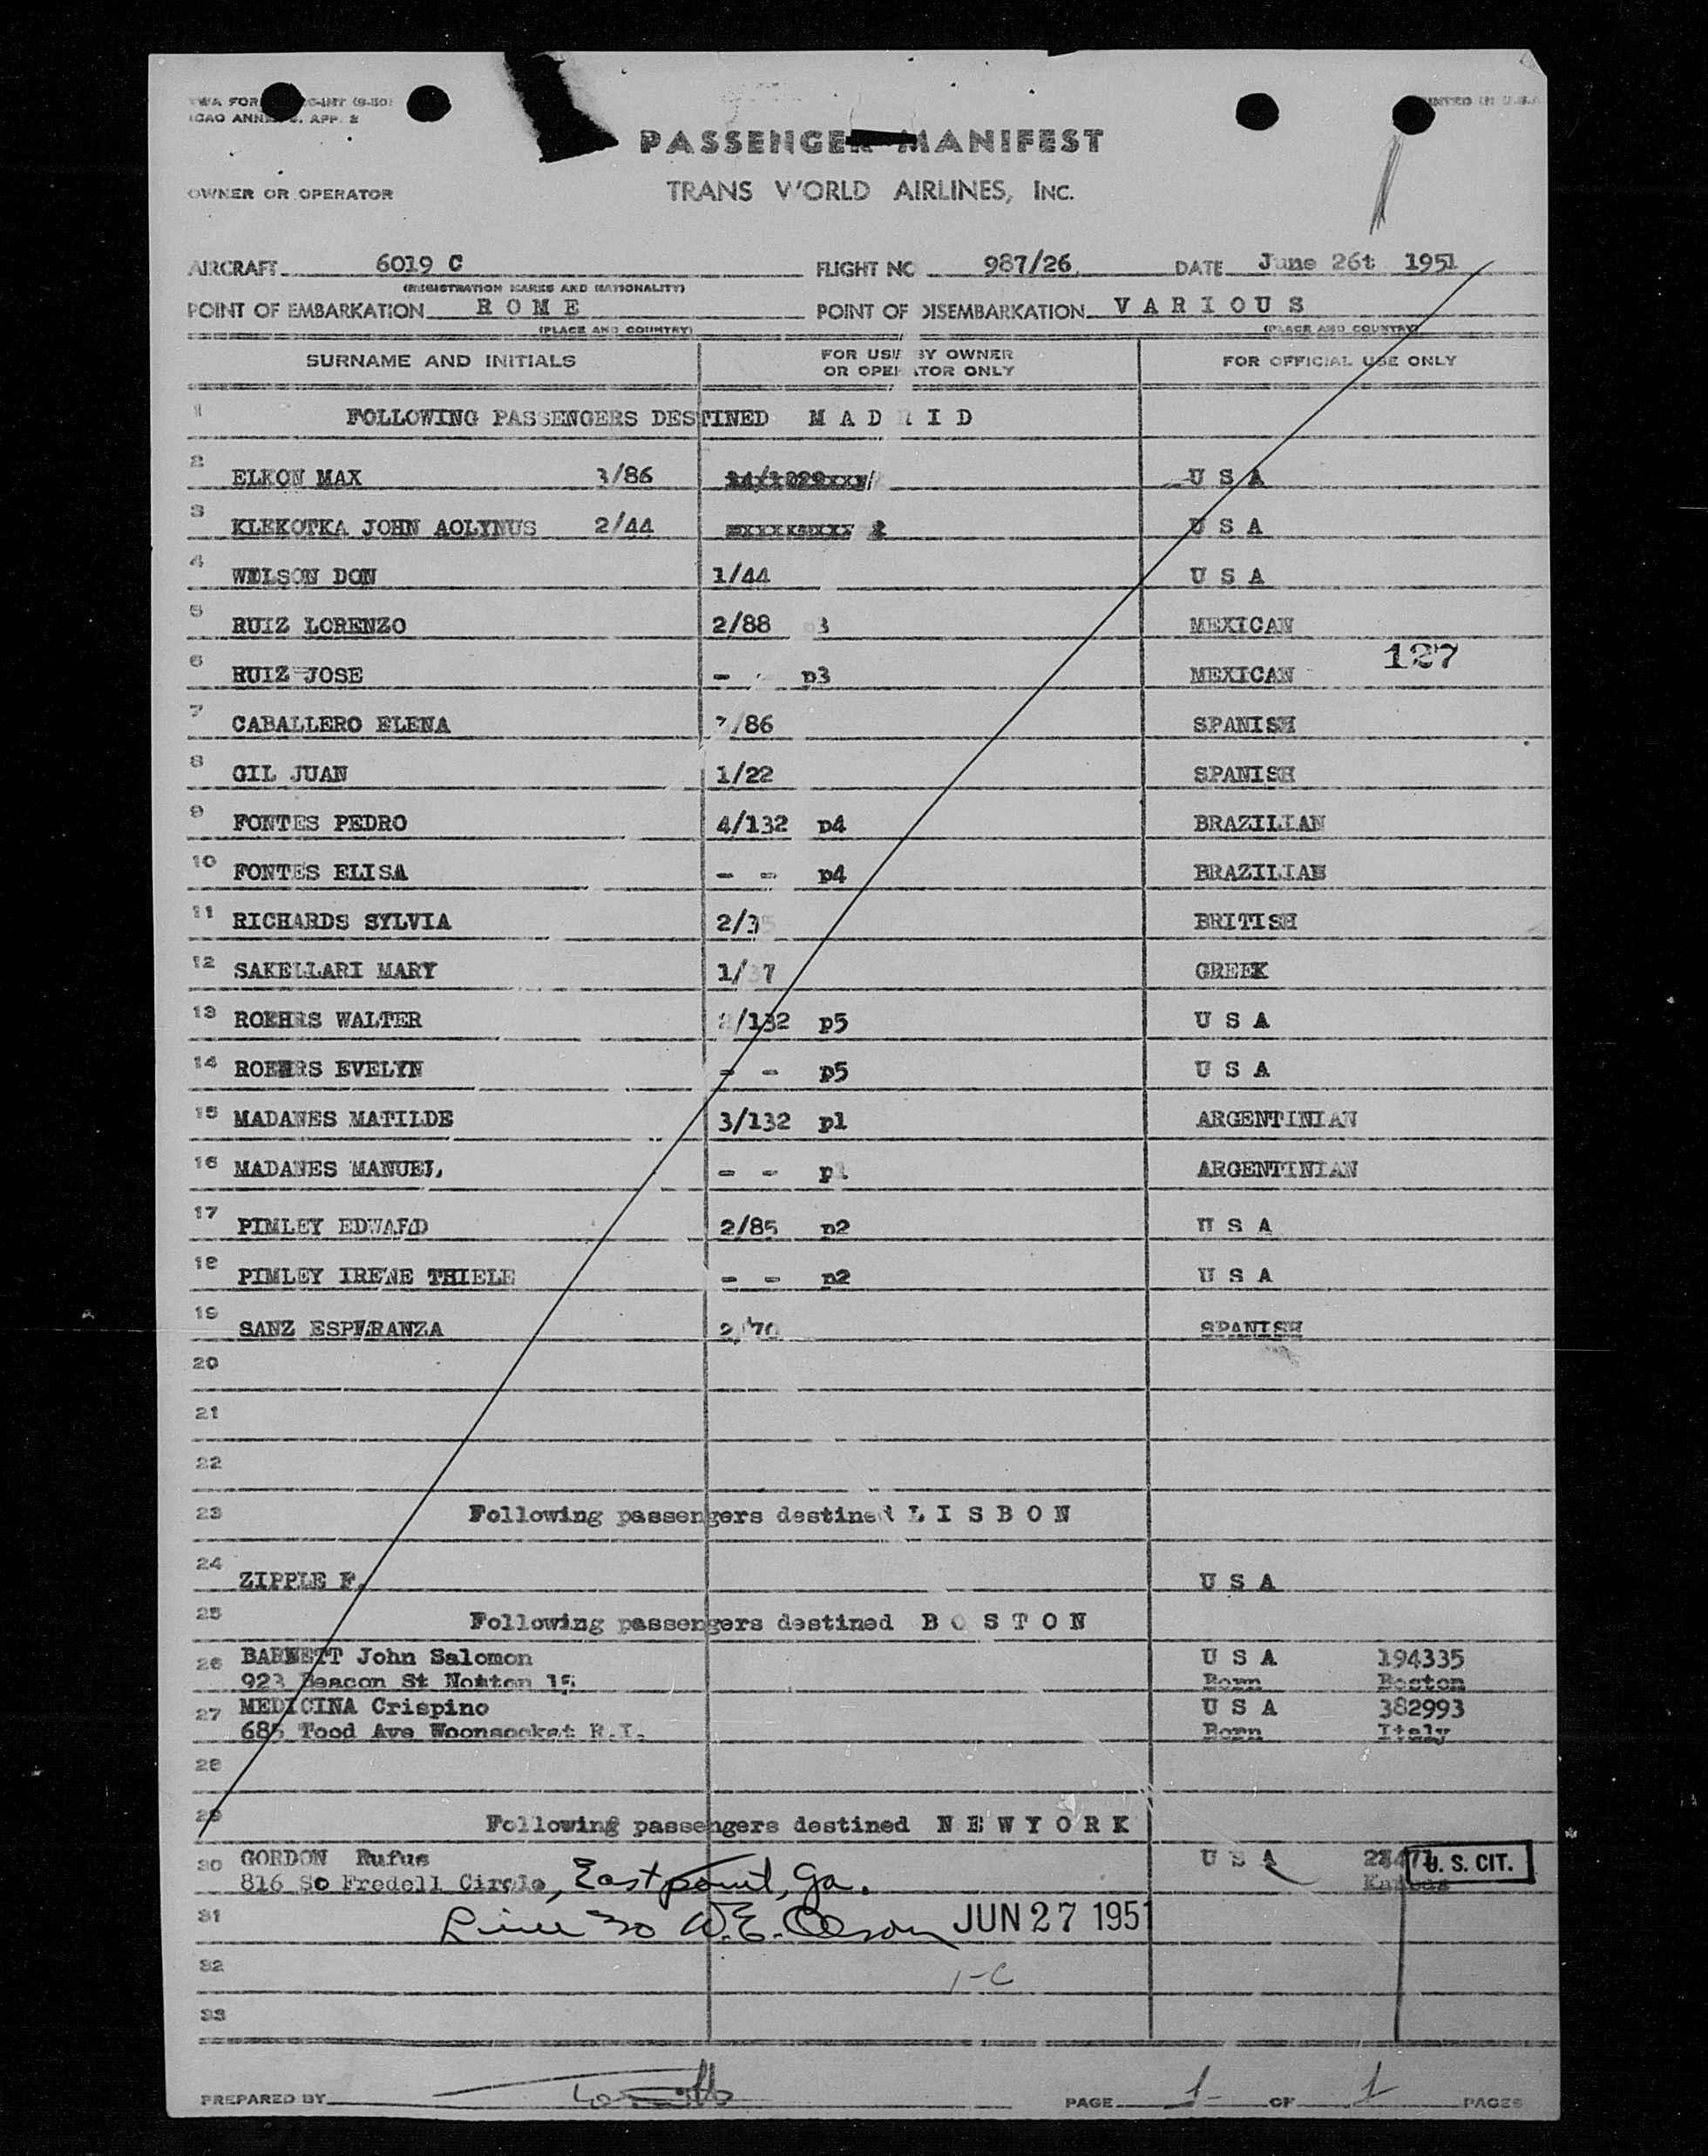 OWNER OR OPERATOR
PASSENGER MANIFEST
TRANS WORLD AIRLINES, INC.
AIRCRAFT 6019 C FLIGHT NO 987/26 DATE June 26t 1951
(REGISTRATION MARKS AND NATIONALITY)
POINT OF EMBARKATION R O M E POINT OF DISEMBARKATION V A R I O U S
(PLACE AND COUNTRY) (PLACE AND COUNTRY)
SURNAME AND INITIALS FOR USE BY OWNER OR OPERATOR ONLY FOR OFFICIAL USE ONLY
1 FOLLOWING PASSENGERS DESTINED M A D R I D
2 ELKON MAX 3/86 U S A
3 KLEKOTKA JOHN AOLYNUS 2/44 U S A
4 WILSON DON 1/44 U S A
5 RUIZ LORENZO 2/88 p3 MEXICAN
127
6 RUIZ JOSE - - p3 MEXICAN
7 CABALLERO ELENA /86 SPANISH
8 GIL JUAN 1/22 SPANISH
9 FONTES PEDRO 4/132 p4 BRAZILIAN
10 FONTES ELISA - - p4 BRAZILIAN
11 RICHARDS SYLVIA 2/35 BRITISH
12 SAKELLARI MARY 1/37 GREEK
13 ROEHRS WALTER 2/132 p5 U S A
14 ROEHRS EVELYN - - p5 U S A
15 MADANES MATILDE 3/132 p1 ARGENTINIAN
16 MADANES MANUEL - - p1 ARGENTINIAN
17 PIMLEY EDWARD 2/85 p2 U S A
18 PIMLEY IRENE THIELE - - p2 U S A
19 SANZ ESPERANZA 2/70 SPANISH
20
21
22
23 Following passengers destined L I S B O N
24 ZIPPLE F. U S A
25 Following passengers destined B O S T O N
26 BARNETT John Salomon U S A 194335
923 Beacon St Born Boston
27 MEDICINA Crispino U S A 382993
685 Tood Ave Woonsocket R.I. Born Italy
28
29 Following passengers destined N E W Y O R K
30 GORDON Rufus U S A U. S. CIT.
816 So Fredell Circle, East point, Ga. Kansas
31 Line 30 W.E. Olson JUN 27 1951
32 1-C
33
PREPARED BY PAGE 1 OF 1 PAGES